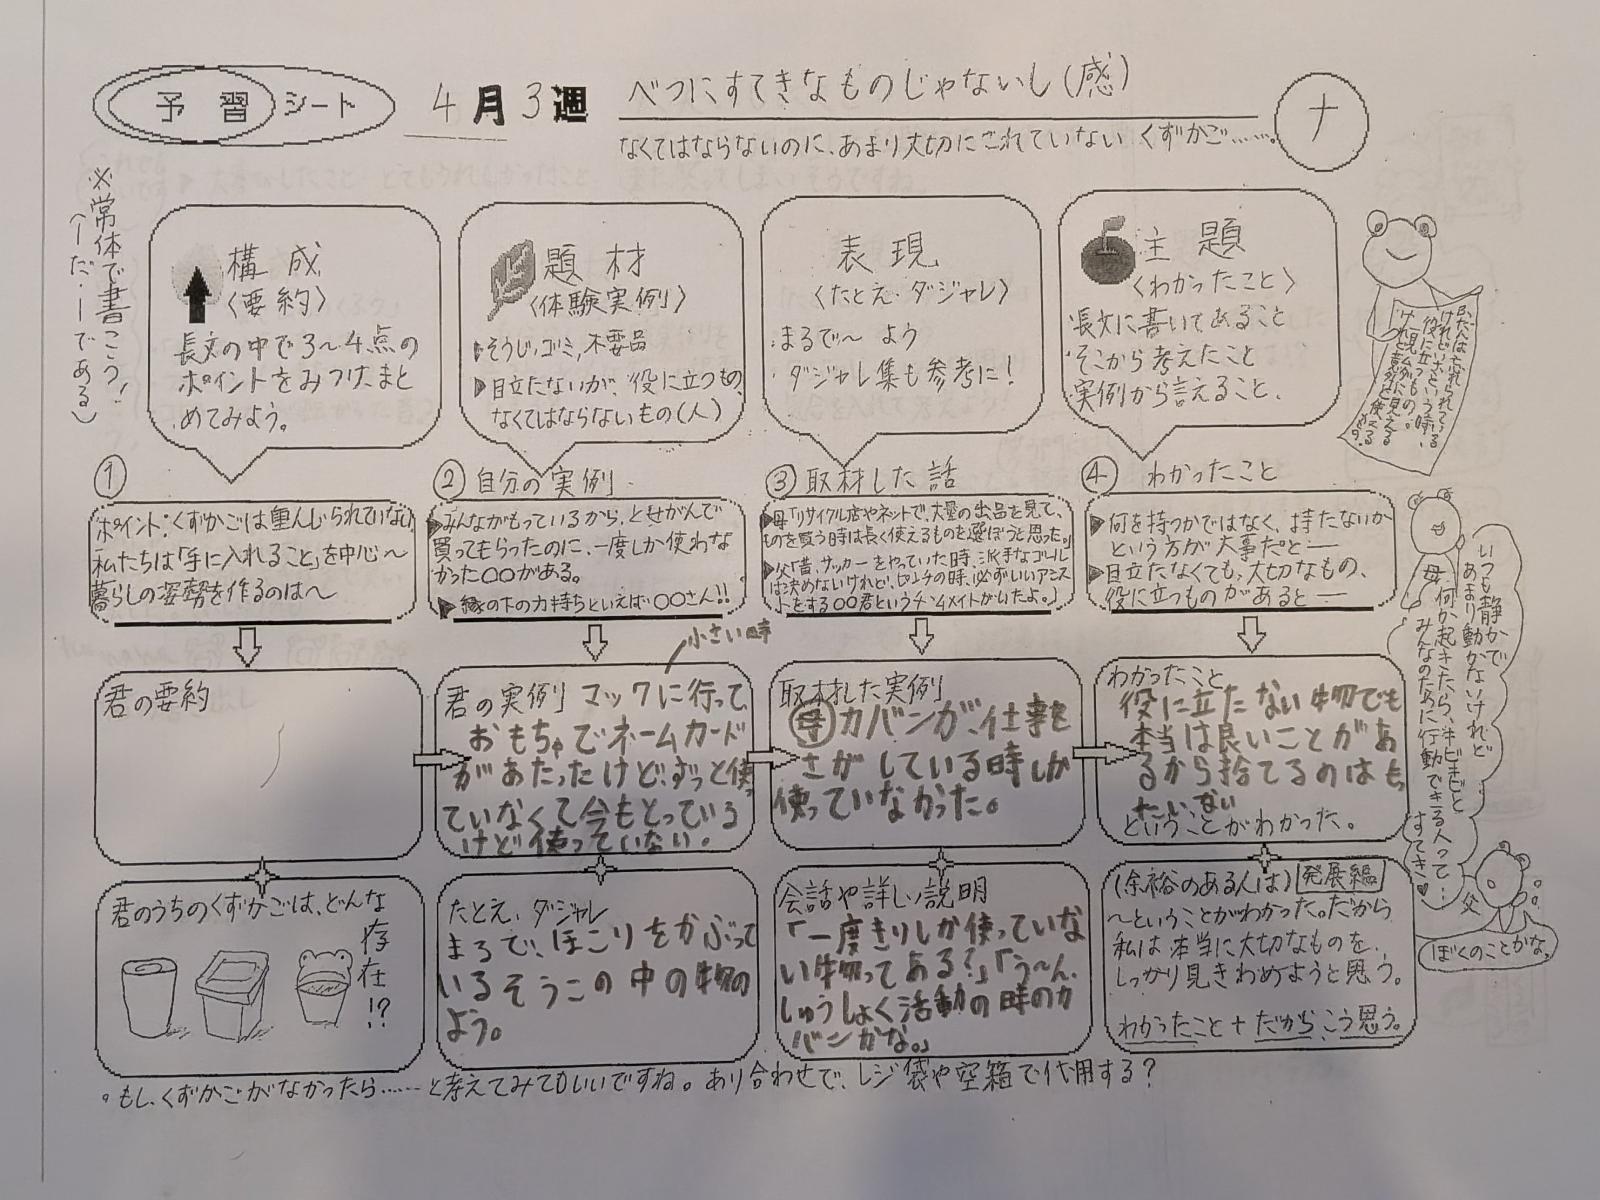 予習シート
4月3週
べつにすてきなものじゃないし(感)
なくてはならないのに、あまり大切にされていないくずかご……。
ナ
※常体で書こう!
(〜だ。〜である)
構成
〈要約〉
長文の中で3〜4点の
ポイントをみつけ、まと
めてみよう。
題材
〈体験実例〉
そうじ、ゴミ、不要品
目立たないが、役に立つもの、
なくてはならないもの(人)
表現
〈たとえ・ダジャレ〉
まるで〜よう
ダジャレ集も参考に!
主題
〈わかったこと〉
長文に書いてあること
そこから考えたこと
実例から言えること、
ふだんは忘れられている
けれどいざという時、
役に立つもの。
一見ムダに見える
けれど意外と使える
もの。
①
ポイント:くずかごは重んじられていない
私たちは「手に入れること」を中心〜
暮らしの姿勢を作るのは〜
②自分の実例
みんながもっているから、とせがんで
買ってもらったのに、一度しか使わな
かった〇〇がある。
縁の下の力持ちといえば〇〇さん!!
③取材した話
母「リサイクル店やネットで、大量の出品を見て、
ものを買う時は長く使えるものを選ぼうと思った。」
父「昔、サッカーをやっていた時、派手なゴール
は決めないけれど、ピンチの時、必ずいいアシス
トをする〇〇君というチームメイトがいたよ。」
④わかったこと
何を持つかではなく、持たないか
という方が大事だと―
目立たなくても、大切なもの、
役に立つものがあると―
いつも静かで
あまり動かないけれど
何か起きたら、キビキビと
みんなのために行動できる人って…
すてき♥
母
君の要約
小さい時
君の実例 マックに行って、
おもちゃでネームカード
があたったけど、ずっと使っ
ていなくて今もとっている
けど使っていない。
取材した実例
母 カバンが、仕事を
さがしている時しか
使っていなかった。
わかったこと
役に立たない物でも
本当は良いことがあ
るから捨てるのはも
ったいない
ということがわかった。
君のうちのくずかごは、どんな
存在!?
たとえ、ダジャレ
まるで、ほこりをかぶって
いるそうこの中の物の
よう。
会話や詳しい説明
「一度きりしか使っていな
い物ってある?」「う〜ん、
しゅうしょく活動の時のカ
バンかな。」
(余裕のある人は)発展編
〜ということがわかった。だから
私は本当に大切なものを、
しっかり見きわめようと思う。
わかったこと+だから、こう思う。
父
ぼくのことかな。
。もし、くずかごがなかったら……と考えてみてもいいですね。あり合わせで、レジ袋や空箱で代用する?